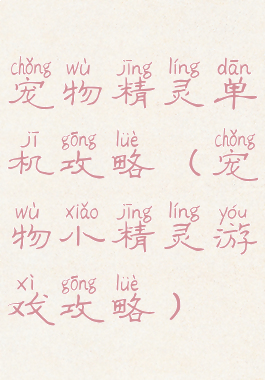 chǒng wù jīng líng dān
宠物精灵单
jī gōng lüè chǒng
机攻略（宠
wù xiǎo jīng líng yóu
物小精灵游
xì gōng lüè
戏攻略）